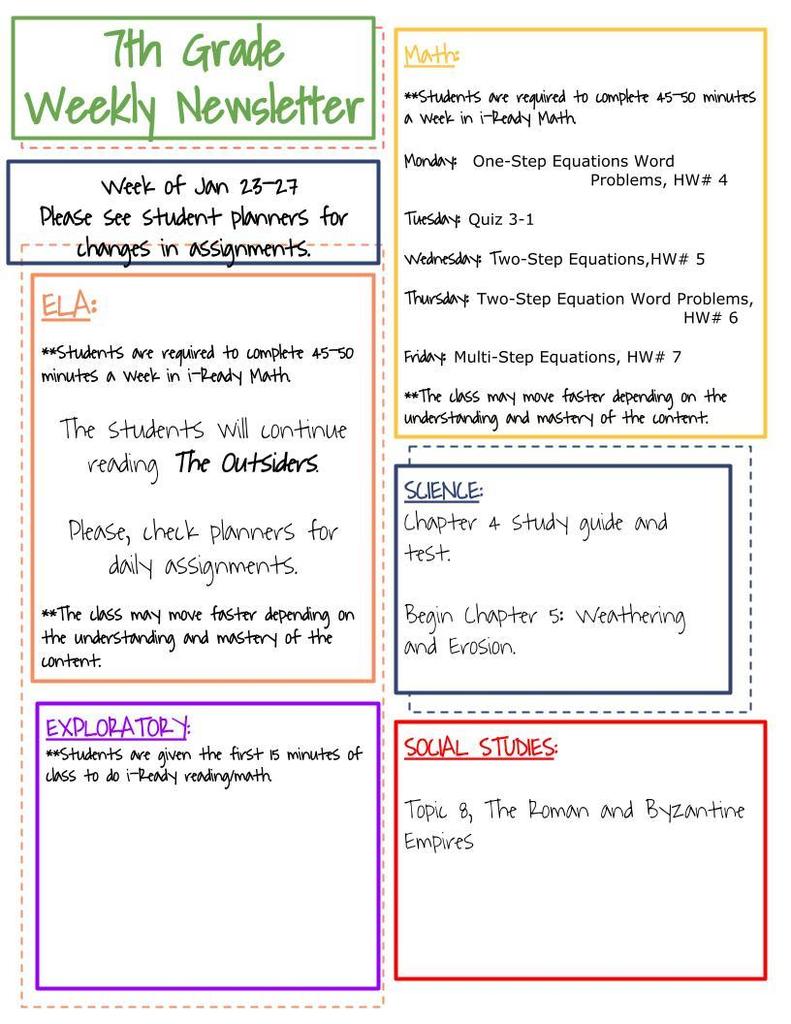 7th Grade
Weekly Newsletter
Week of Jan 23-27
Please see student planners for
changes in assignments.
ELA:
**Students are required to complete 45-50
minutes a week in i-Ready Math.
The students will continue
reading The Outsiders.
Please, check planners for
daily assignments.
**The class may move faster depending on
the understanding and mastery of the
content.
EXPLORATORY:
**Students are given the first 15 minutes of
class to do i-Ready reading/math.
Math:
**Students are required to complete 45-50 minutes
a week in i-Ready Math.
Monday: One-Step Equations Word
Problems, HW# 4
Tuesday: Quiz 3-1
Wednesday: Two-Step Equations,HW# 5
Thursday: Two-Step Equation Word Problems,
HW# 6
Friday: Multi-Step Equations, HW# 7
**The class may move faster depending on the
understanding and mastery of the content.
SCIENCE:
Chapter 4 study guide and
test.
Begin Chapter 5: Weathering
and Erosion.
SOCIAL STUDIES:
Topic 8, The Roman and Byzantine
Empires